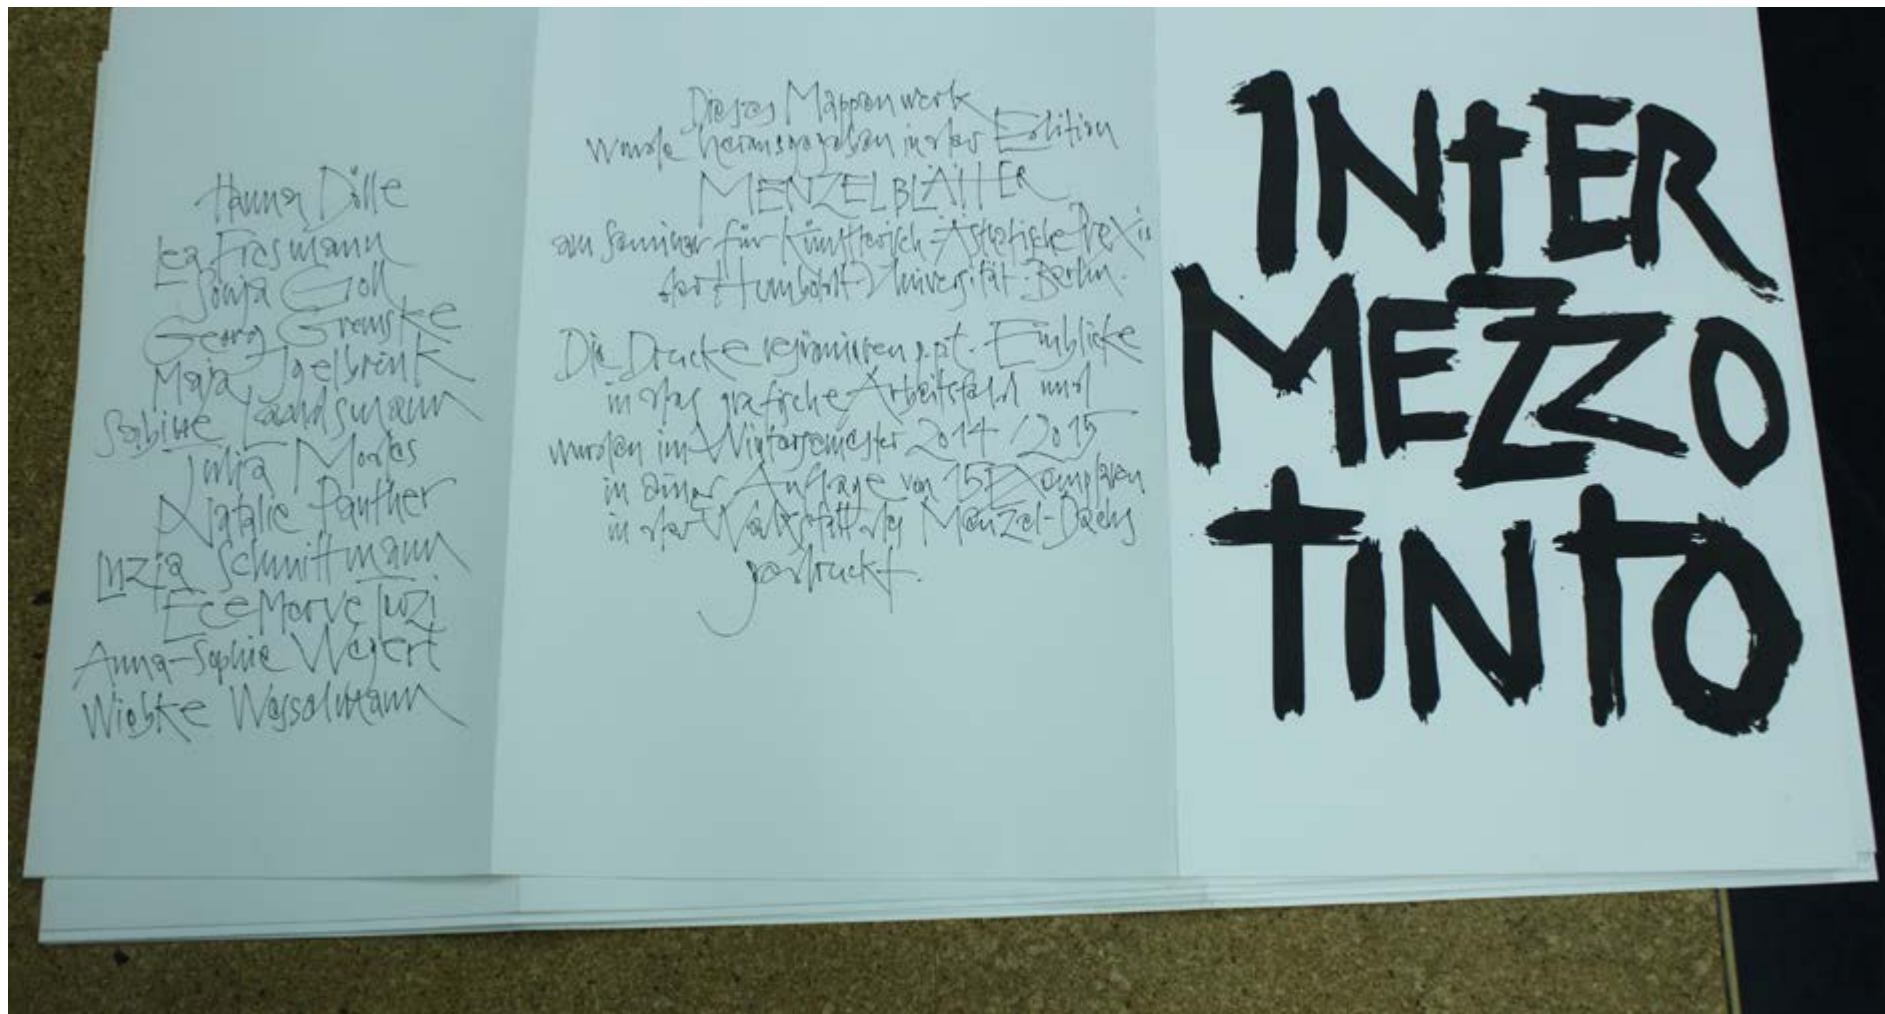 Hanna Dölle
Lea Firsmann
Sonja Goll
Georg Gremske
Maja Jgelbrink
Sabine Landsmann
Julia Morks
Natalie Panther
Luzia Schmittmann
Ece Merve Tuzi
Anna-Sophie Wegert
Wiebke Wesselmann
Dieses Mappenwerk
wurde herausgegeben in der Edition
MENZELBLÄTTER
am Seminar für Künstlerisch-Ästhetische Praxis
der Humboldt-Universität-Berlin.
Die Drucke resümieren p.pt. Einblicke
in das grafische Arbeitsfeld und
wurden im Wintersemester 2014/2015
in einer Auflage von 15 Exemplaren
in der Werkstatt des Menzel-Dachs
gedruckt.
INtER
MEZZO
tINTO